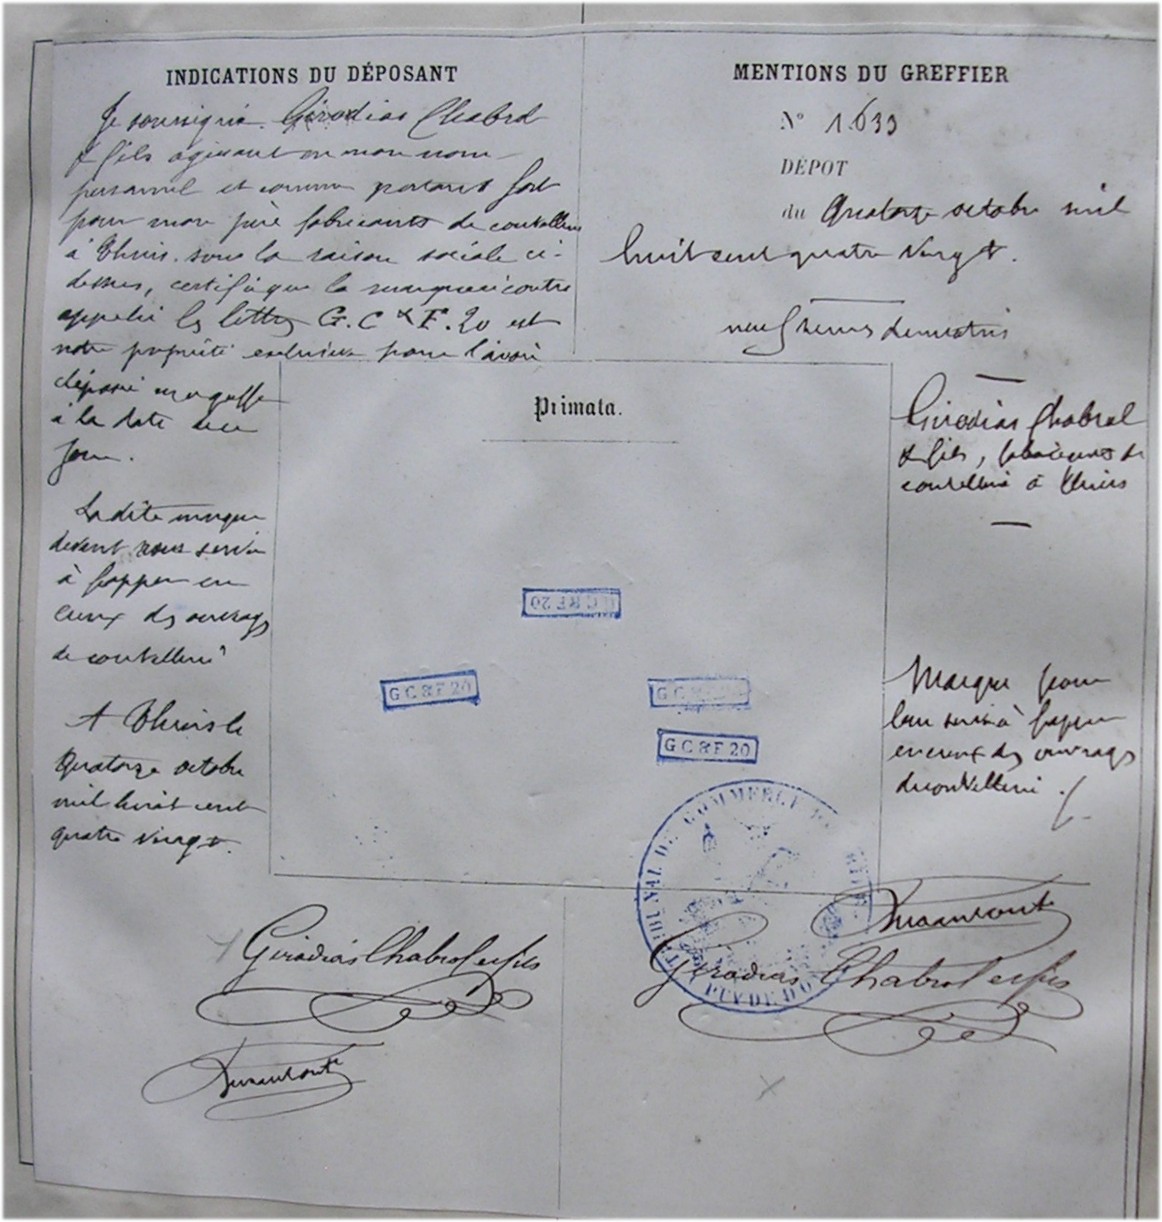 INDICATIONS DU DÉPOSANT
Je soussigné Girodias Chabrol
& fils agissant en mon nom
personnel et comme portant fort
pour mon père fabricants de coutellerie
à Thiers sous la raison sociale ci-
dessus, certifie que la marque ci contre
appelée les lettres G.C & F. 20 est
notre propriété exclusive pour l'avoir
déposé au greffe
à la date de ce
jour.
La dite marque
devant nous servir
à frapper en
creux des ouvrages
de coutellerie
A Thiers le
quatorze octobre
mil huit cent
quatre vingt.
Girodias Chabrol et fils
MENTIONS DU GREFFIER
N° 1.633
DÉPOT
du quatorze octobre mil
huit cent quatre vingt.
neuf heures du matin
Girodias Chabrol
& fils, fabricants de
coutellerie à Thiers
Marque pour
leur servir à frapper
en creux des ouvrages
de coutellerie.
Girodias Chabrol et fils
Primata.
GC&F20
GC&F20
GC&F20
GC&F20
TRIBUNAL DE COMMERCE DE THIERS
PUY DE DOME